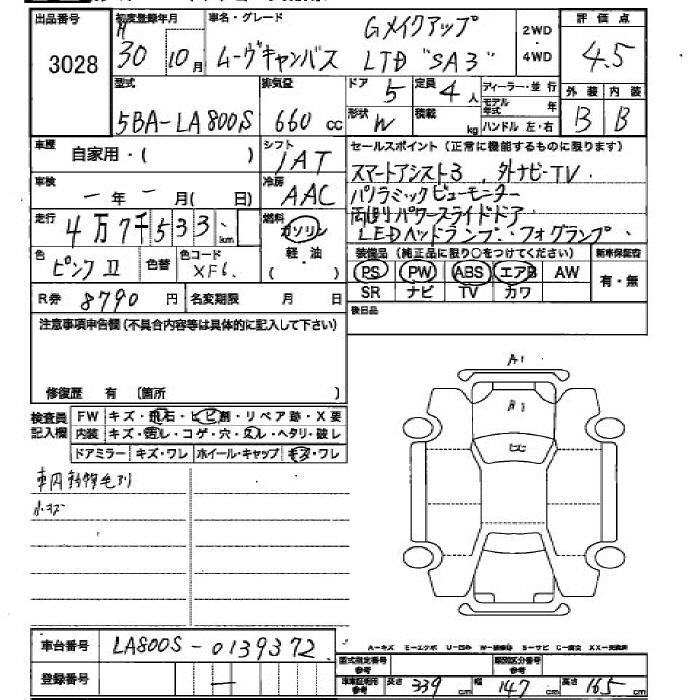 出品番号 初度登録年月 車名・グレード Gメイクアップ 2WD 評価点
3028 H 30 10月 ムーヴキャンバス LTD "SA3" 4WD 4.5
型式 排気量 ドア 5 定員 4人 ディーラー・並行 外装 内装
5BA-LA800S 660cc 形状 W 積載 kg モデル年式 年 ハンドル 左・右 B B
車歴 自家用・( ) シフト IAT セールスポイント(正常に機能するものに限ります)
スマートアシスト3 、外ナビ・TV
車検 一年 一 月( 日) 冷房 AAC パノラミックビューモニター
走行 4万7千533km 燃料 ガソリン 両側パワースライドドア
軽・油 LEDヘッドランプ・フォグランプ
色 ピンクII 色替 色コード XF6. 装備品(純正品に限り○をつけてください) 新車保証書
PS PW ABS エアB AW 有・無
R券 8790円 名変期限 月 日 SR ナビ TV カワ
注意事項申告欄(不具合内容等は具体的に記入して下さい) 後日品
修復歴 有 〔箇所 )
A1
A1
検査員記入欄 FW キズ・飛石・ヒビ割・リペア跡・X要
内装 キズ・汚レ・コゲ・穴・スレ・ヘタリ・破レ
ドアミラー キズ・ワレ ホイール・キャップ キズ・ワレ
車内動物毛アリ
小キズ
車台番号 LA800S-0139372
A-キズ E-エクボ U-凹み S-サビ C-腐食
登録番号 — 型式指定番号 参考 類別区分番号 参考
車庫証明用 参考 長さ 339cm 幅 147cm 高さ 165cm